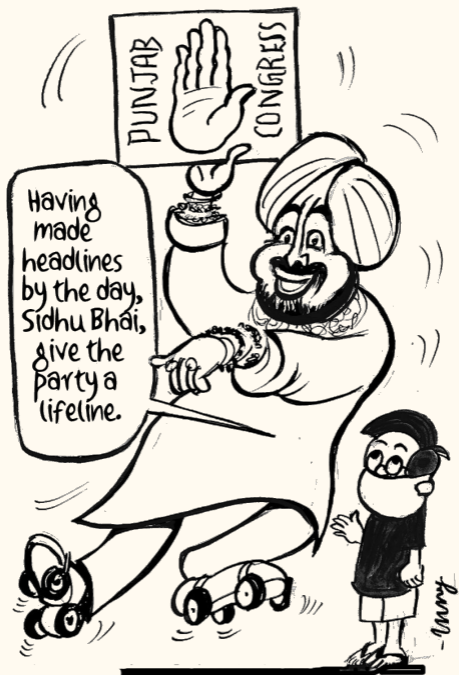 PUNJAB
CONGRESS
Having
made
headlines
by the day,
Sidhu Bhai,
give the
party a
lifeline.
-unny